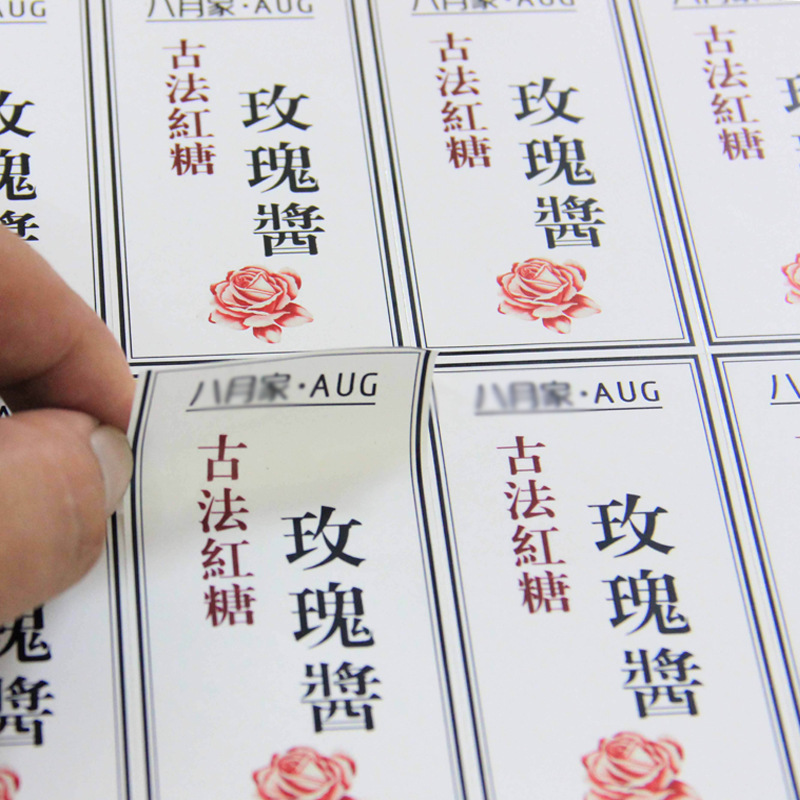 AUG
玫瑰醬
八月家·AUG
古法紅糖
玫瑰醬
八月家·AUG
古法紅糖
玫瑰醬
古法紅糖
瑰醬
八月家·AUG
古法紅糖
玫瑰醬
八月家·AUG
古法紅糖
玫瑰醬